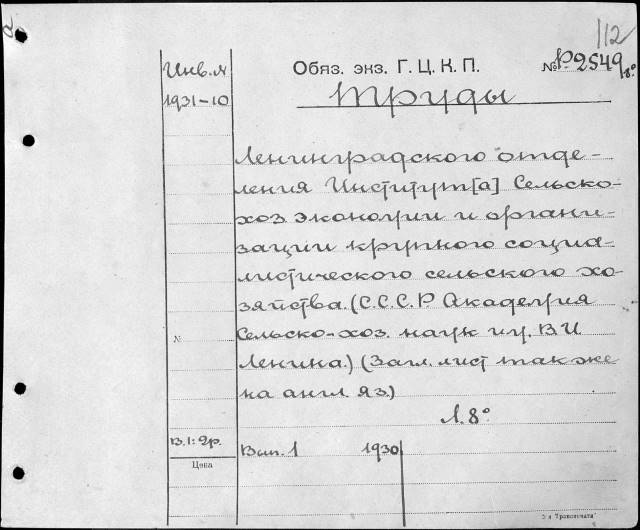 112
Инв. №
1931-10
Обяз. экз. Г. Ц. К. П.
№ Р. 2549 8°
Труды
Ленинградского отде-
ления Институт[а] Сельско-
хоз экономии и органи-
зации крупного социа-
листического сельского хо-
зяйства. (С.С.С.Р Академия
Сельско-хоз. наук им. В.И
Ленина.) (Загл. лист также
на англ. яз.)
Л. 8°
№
В.1: 2р.
Цена
Вып. 1 1930